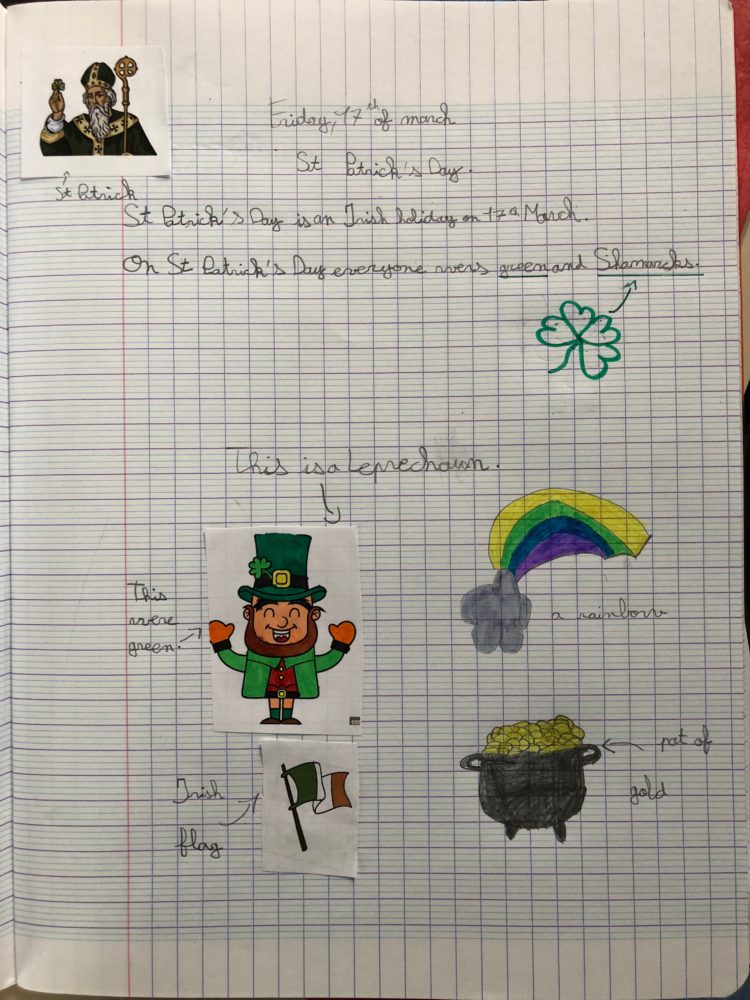 Friday, 17th of march
St Patrick's Day.
St Patrick
St Patrick's Day is an Irish holiday on 17th March.
On St Patrick's Day everyone wers green and Shamarcks.
This is a Leprechaun.
This
were
green.
a rainbow
pot of
gold
Irish
flag